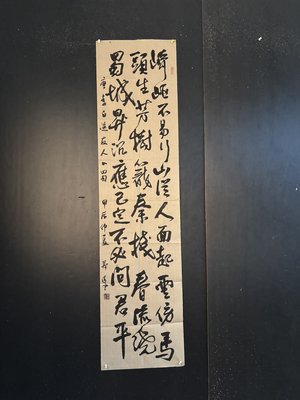 崎嶇不易行山從人面起雲傍馬
頭生芳樹籠秦棧春流繞
蜀城昇沉應已定不必問君平
唐李白送友人入蜀 甲辰仲夏